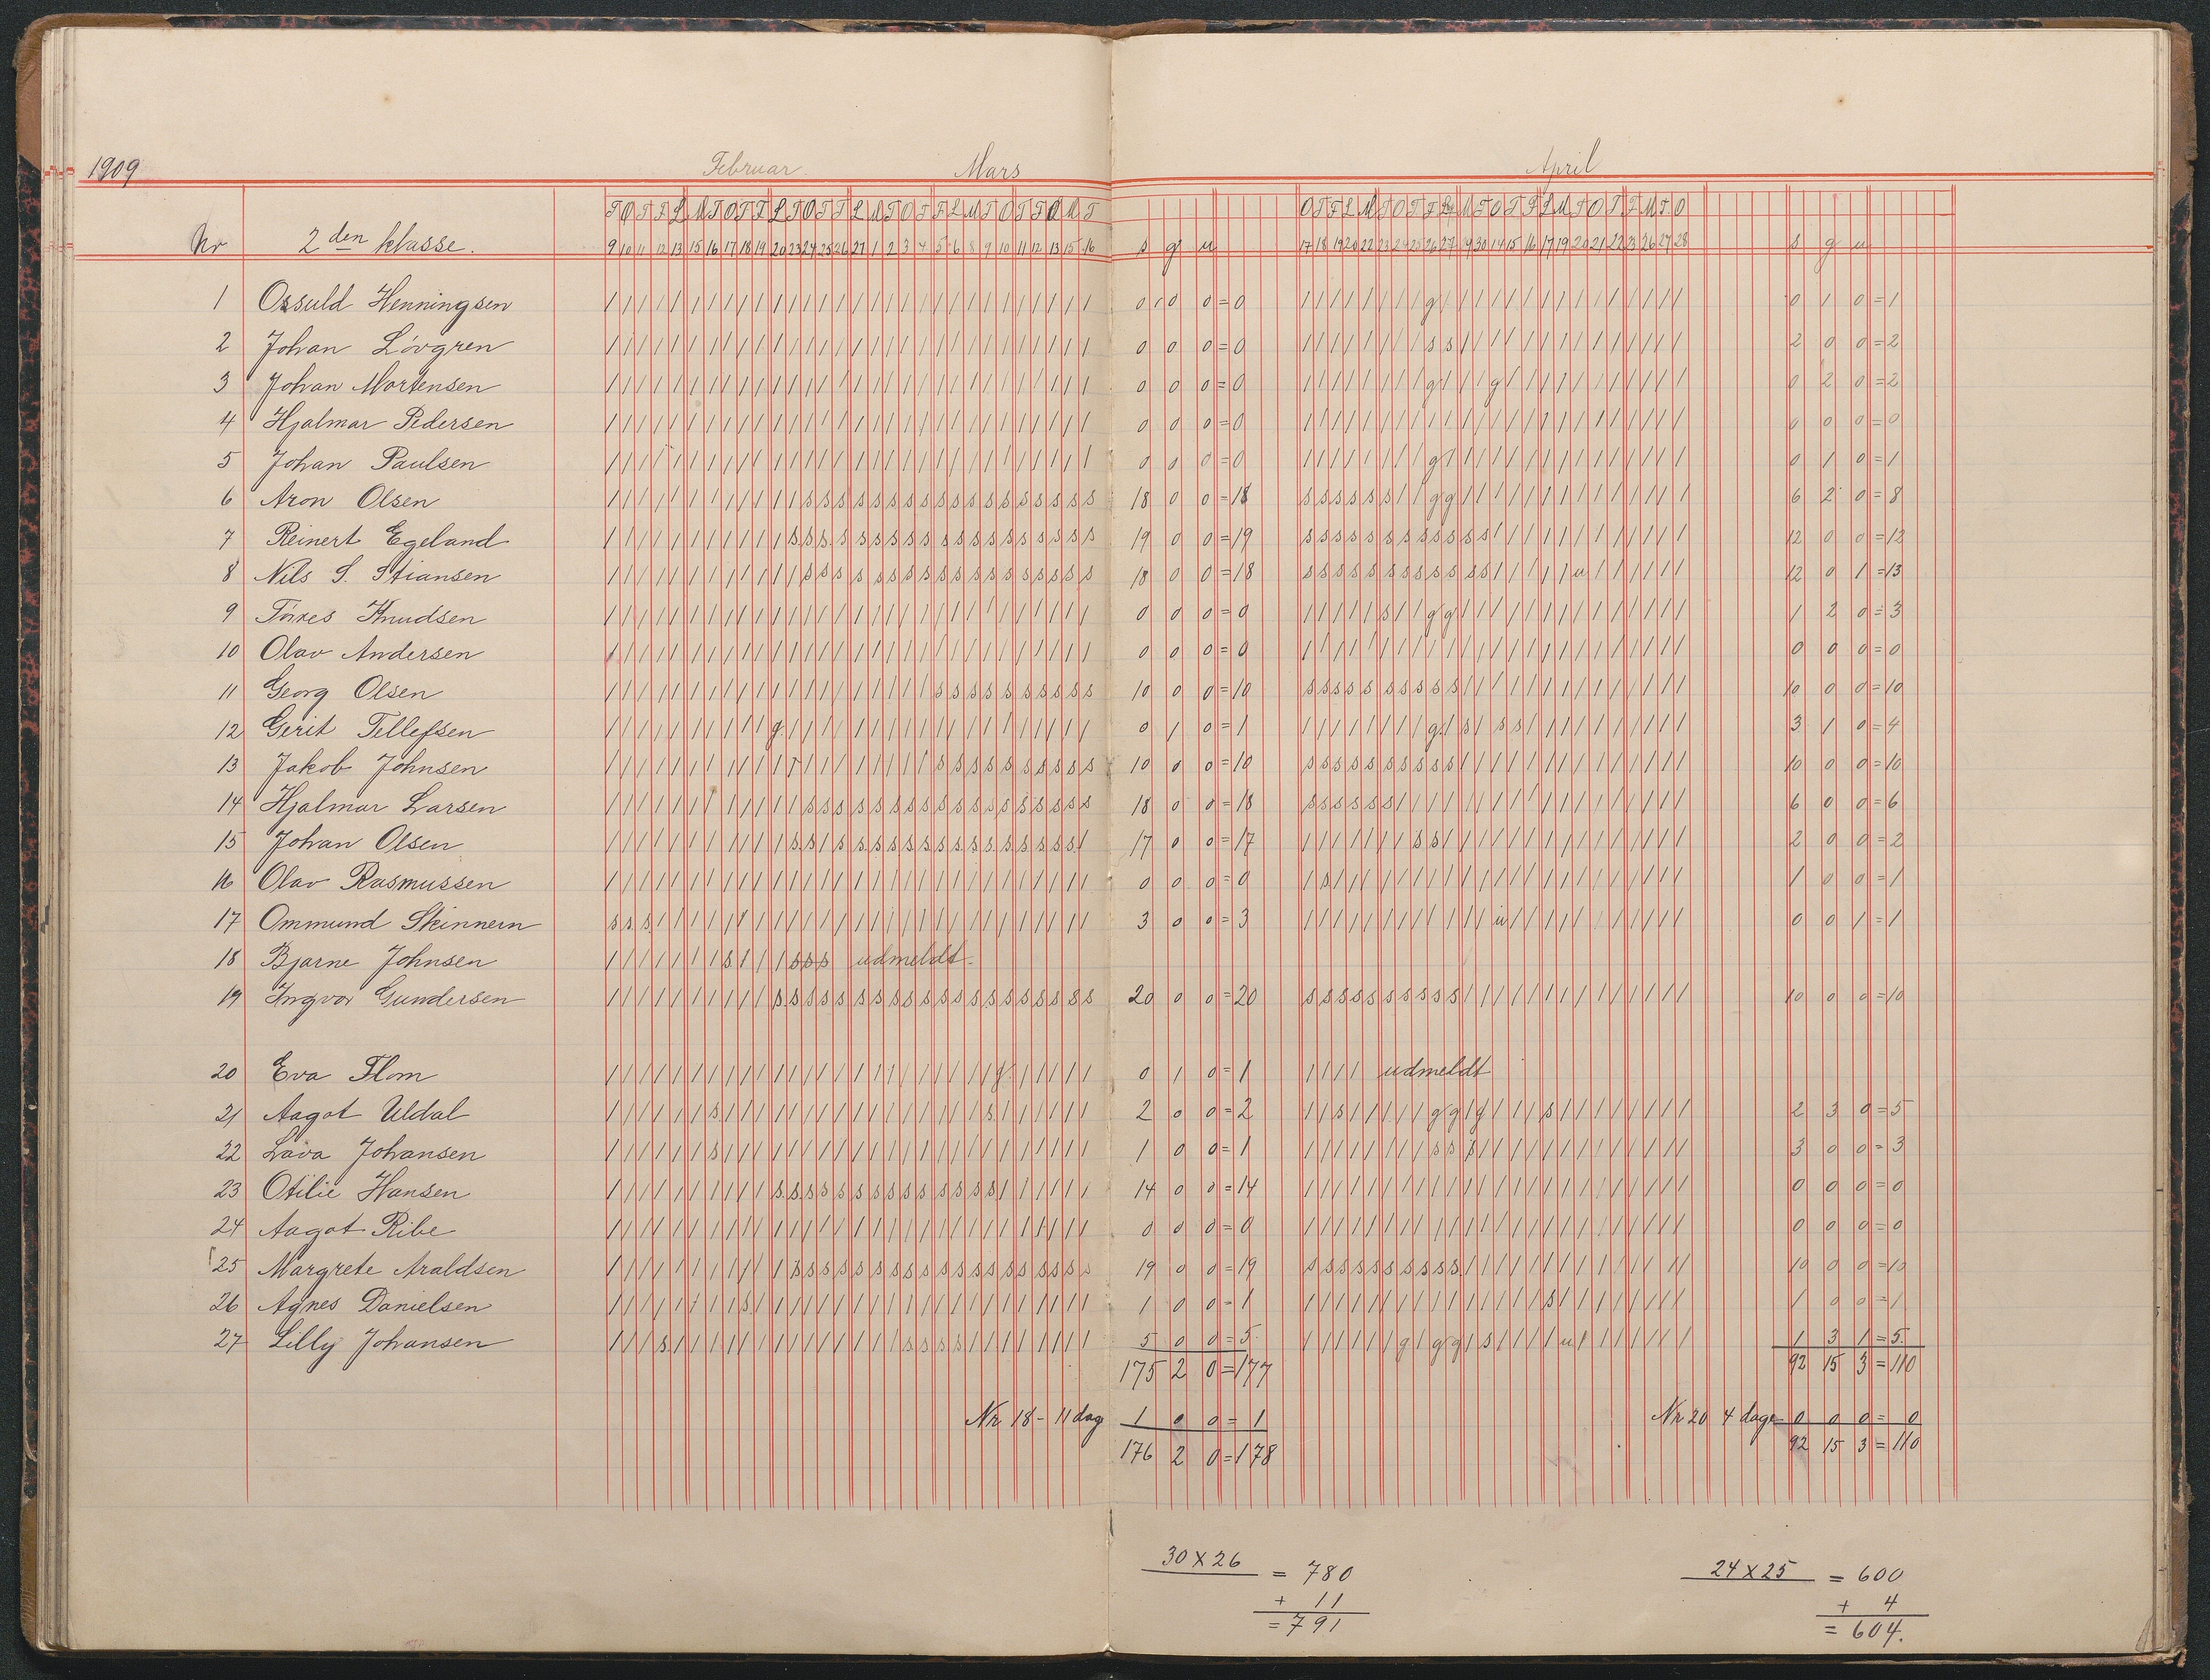 1909 Februar. Mars April
T O T F L M T O T F L T O T T L M T O T F L M T O T F L M T O T F L M T O T F L M T O T F L M T O T F M T O
Nr 2den klasse. 9 10 11 12 13 15 16 17 18 19 20 23 24 25 26 27 1 2 3 4 5 6 8 9 10 11 12 13 15 16 s g u 17 18 19 20 22 23 24 25 26 27 29 30 14 15 16 17 19 20 21 22 23 26 27 28 s g u
1 Ossuld Henningsen 0 0 0 = 0 0 1 0 = 1
2 Johan Lövgren 0 0 0 = 0 2 0 0 = 2
3 Johan Mortensen 0 0 0 = 0 0 2 0 = 2
4 Hjalmar Pedersen 0 0 0 = 0 0 0 0 = 0
5 Johan Paulsen 0 0 0 = 0 0 1 0 = 1
6 Aron Olsen 18 0 0 = 18 6 2 0 = 8
7 Reinert Egeland 19 0 0 = 19 12 0 0 = 12
8 Nils S. Stiansen 18 0 0 = 18 12 0 1 = 13
9 Törres Knudsen 0 0 0 = 0 1 2 0 = 3
10 Olav Andersen 0 0 0 = 0 0 0 0 = 0
11 Georg Olsen 10 0 0 = 10 10 0 0 = 10
12 Gerit Tellefsen 0 1 0 = 1 3 1 0 = 4
13 Jakob Johnsen 10 0 0 = 10 10 0 0 = 10
14 Hjalmar Larsen 18 0 0 = 18 6 0 0 = 6
15 Johan Olsen 17 0 0 = 17 2 0 0 = 2
16 Olav Rasmussen 0 0 0 = 0 1 0 0 = 1
17 Ommund Skinnern 3 0 0 = 3 0 0 1 = 1
18 Bjarne Johnsen udmeldt.
19 Ingvar Gundersen 20 0 0 = 20 10 0 0 = 10
20 Eva Flom 0 1 0 = 1 udmeldt
21 Aagot Uldal 2 0 0 = 2 2 3 0 = 5
22 Lava Johansen 1 0 0 = 1 3 0 0 = 3
23 Otilie Hansen 14 0 0 = 14 0 0 0 = 0
24 Aagot Ribe 0 0 0 = 0 0 0 0 = 0
25 Margrete Araldsen 19 0 0 = 19 10 0 0 = 10
26 Agnes Danielsen 1 0 0 = 1 1 0 0 = 1
27 Lilly Johansen 5 0 0 = 5 1 3 1 = 5.
175 2 0 = 177 92 15 3 = 110
Nr 18 - 11 dag 1 0 0 = 1 Nr 20 4 dage 0 0 0 = 0
176 2 0 = 178 92 15 3 = 110
30 x 26 = 780 24 x 25 = 600
+ 11 + 4
= 791 = 604.